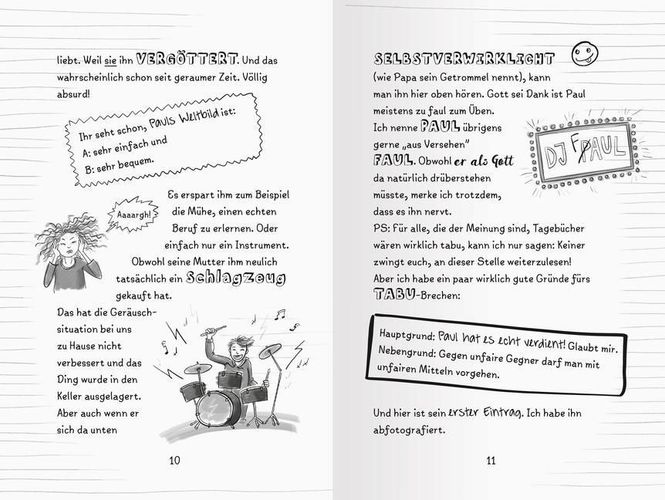 liebt. Weil sie ihn VERGÖTTERT. Und das
wahrscheinlich schon seit geraumer Zeit. Völlig
absurd!
Ihr seht schon, Pauls Weltbild ist:
A: sehr einfach und
B: sehr bequem.
Es erspart ihm zum Beispiel
die Mühe, einen echten
Beruf zu erlernen. Oder
einfach nur ein Instrument.
Aaaargh!
Obwohl seine Mutter ihm neulich
tatsächlich ein Schlagzeug
gekauft hat.
Das hat die Geräusch-
situation bei uns
zu Hause nicht
verbessert und das
Ding wurde in den
Keller ausgelagert.
Aber auch wenn er
sich da unten
10
SELBSTVERWIRKLICHT
(wie Papa sein Getrommel nennt), kann
man ihn hier oben hören. Gott sei Dank ist Paul
meistens zu faul zum Üben.
Ich nenne PAUL übrigens
gerne „aus Versehen"
FAUL. Obwohl er als Gott
da natürlich drüberstehen
müsste, merke ich trotzdem,
dass es ihn nervt.
DJ FPAUL
PS: Für alle, die der Meinung sind, Tagebücher
wären wirklich tabu, kann ich nur sagen: Keiner
zwingt euch, an dieser Stelle weiterzulesen!
Aber ich habe ein paar wirklich gute Gründe fürs
TABU-Brechen:
Hauptgrund: Paul hat es echt verdient! Glaubt mir.
Nebengrund: Gegen unfaire Gegner darf man mit
unfairen Mitteln vorgehen.
Und hier ist sein erster Eintrag. Ich habe ihn
abfotografiert.
11